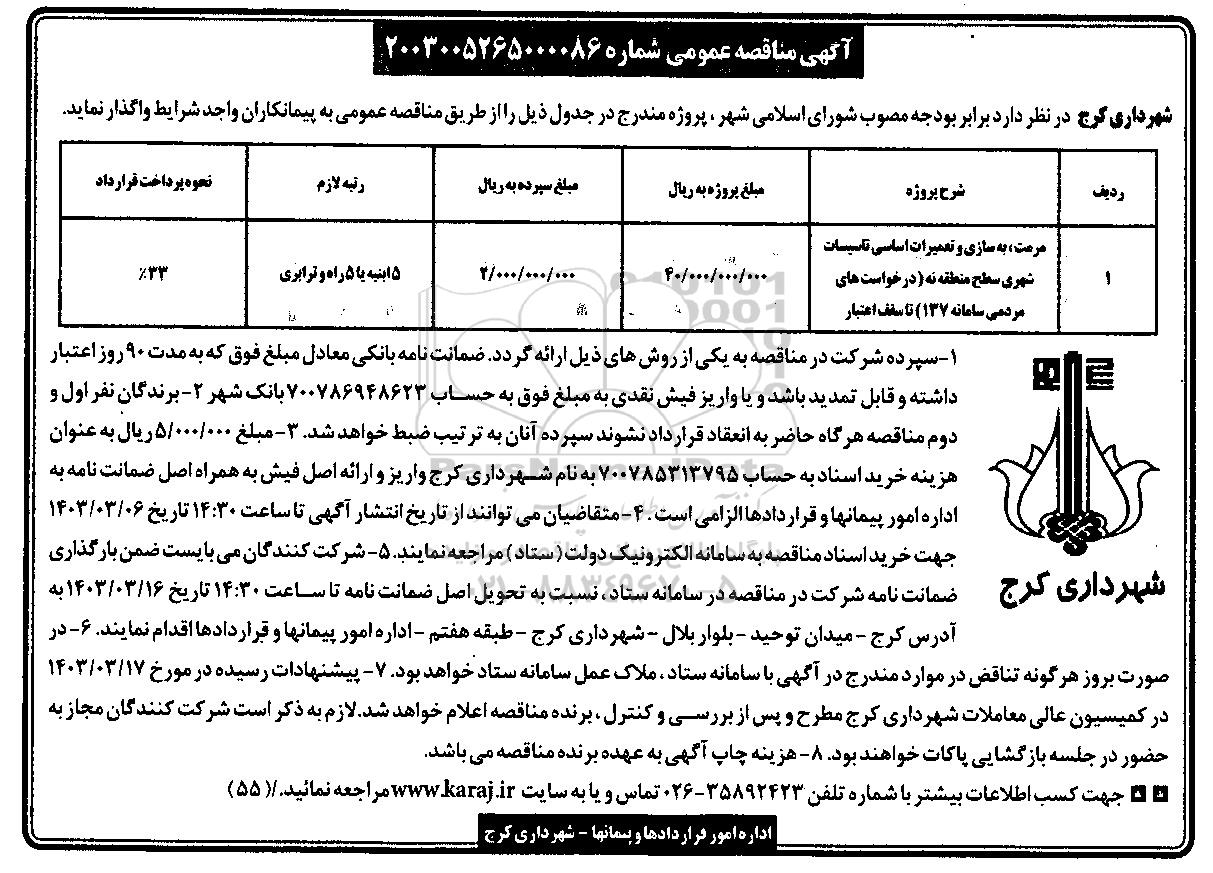 آگهی مناقصه عمومی شماره ۲۰۰۳۰۰۵۲۶۵۰۰۰۰۸۶
شهرداری کرج در نظر دارد برابر بودجه مصوب شورای اسلامی شهر، پروژه مندرج در جدول ذیل را از طریق مناقصه عمومی به پیمانکاران واجد شرایط واگذار نماید.
ردیف شرح پروژه مبلغ پروژه به ریال مبلغ سپرده به ریال رتبه لازم نحوه پرداخت قرارداد
۱ مرمت، به سازی و تعمیرات اساسی تاسیسات شهری سطح منطقه نه (درخواست های مردمی سامانه ۱۳۷) تا سقف اعتبار ۴۰/۰۰۰/۰۰۰/۰۰۰ ۲/۰۰۰/۰۰۰/۰۰۰ ۵ ابنیه یا ۵ راه و ترابری ۳۳٪
۱-سپرده شرکت در مناقصه به یکی از روش های ذیل ارائه گردد. ضمانت نامه بانکی معادل مبلغ فوق که به مدت ۹۰ روز اعتبار
داشته و قابل تمدید باشد و یا واریز فیش نقدی به مبلغ فوق به حساب ۷۰۰۷۸۶۹۴۸۶۲۳ بانک شهر ۲-برندگان نفر اول و
دوم مناقصه هرگاه حاضر به انعقاد قرارداد نشوند سپرده آنان به ترتیب ضبط خواهد شد. ۳-مبلغ ۵/۰۰۰/۰۰۰ ریال به عنوان
هزینه خرید اسناد به حساب ۷۰۰۷۸۵۳۱۳۷۹۵ به نام شهرداری کرج واریز و ارائه اصل فیش به همراه اصل ضمانت نامه به
اداره امور پیمانها و قراردادها الزامی است. ۴-متقاضیان می توانند از تاریخ انتشار آگهی تا ساعت ۱۴:۳۰ تاریخ ۱۴۰۳/۰۳/۰۶
جهت خرید اسناد مناقصه به سامانه الکترونیک دولت (ستاد) مراجعه نمایند. ۵-شرکت کنندگان می بایست ضمن بارگذاری
ضمانت نامه شرکت در مناقصه در سامانه ستاد، نسبت به تحویل اصل ضمانت نامه تا ساعت ۱۴:۳۰ تاریخ ۱۴۰۳/۰۳/۱۶ به
آدرس کرج -میدان توحید -بلوار بلال -شهرداری کرج -طبقه هفتم -اداره امور پیمانها و قراردادها اقدام نمایند. ۶-در
شهرداری کرج
صورت بروز هرگونه تناقض در موارد مندرج در آگهی با سامانه ستاد، ملاک عمل سامانه ستاد خواهد بود. ۷- پیشنهادات رسیده در مورخ ۱۴۰۳/۰۳/۱۷
در کمیسیون عالی معاملات شهرداری کرج مطرح و پس از بررسی و کنترل، برنده مناقصه اعلام خواهد شد. لازم به ذکر است شرکت کنندگان مجاز به
حضور در جلسه بازگشایی پاکات خواهند بود. ۸-هزینه چاپ آگهی به عهده برنده مناقصه می باشد.
جهت کسب اطلاعات بیشتر با شماره تلفن ۳۵۸۹۲۴۲۳-۰۲۶ تماس و یا به سایت www.karaj.ir مراجعه نمائید./( ۵۵ )
اداره امور قراردادها و پیمانها - شهرداری کرج
ParsNamadData
۰۲۱-۸۸۳۴۹۶۷۰-۵